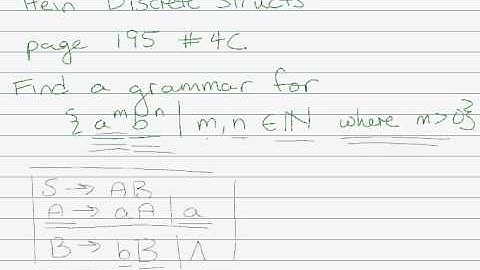 Hein Discrete Structs
page 195 #4C.
Find a grammar for
{a^m b^n | m, n ∈ ℕ where m>0}
S → AB
A → aA | a
B → bB | Λ